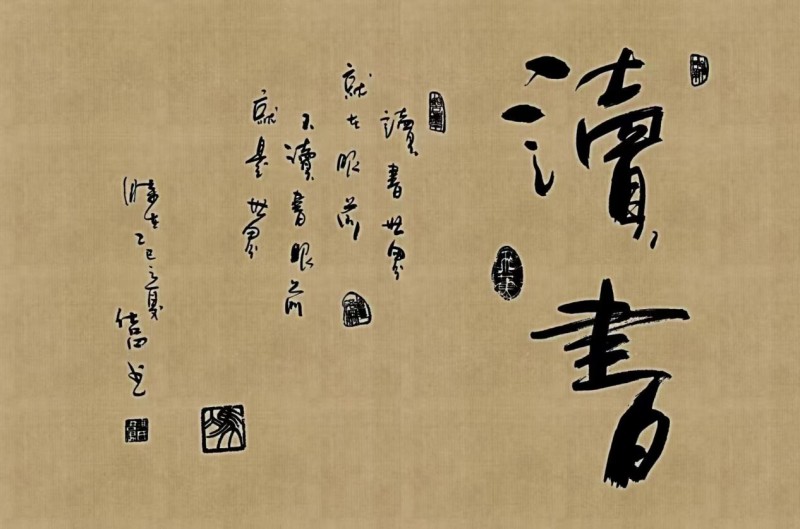 讀書
讀書世界
就在眼前
不讀書眼前
就是世界
時在乙巳之夏